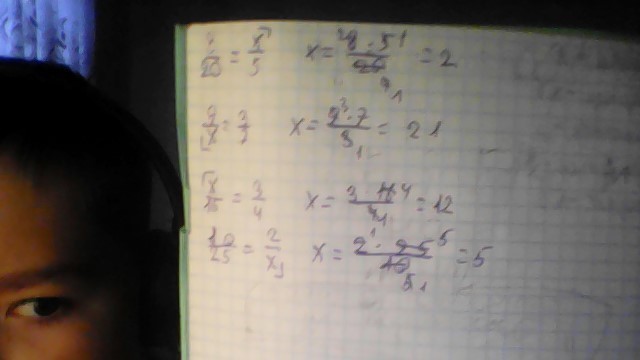 8/20 = x/5 x = 8 · 5 / 20 = 2
9/x = 3/7 x = 9 · 7 / 3 = 21
x/16 = 3/4 x = 3 · 16 / 4 = 12
10/25 = 2/x x = 2 · 25 / 10 = 5